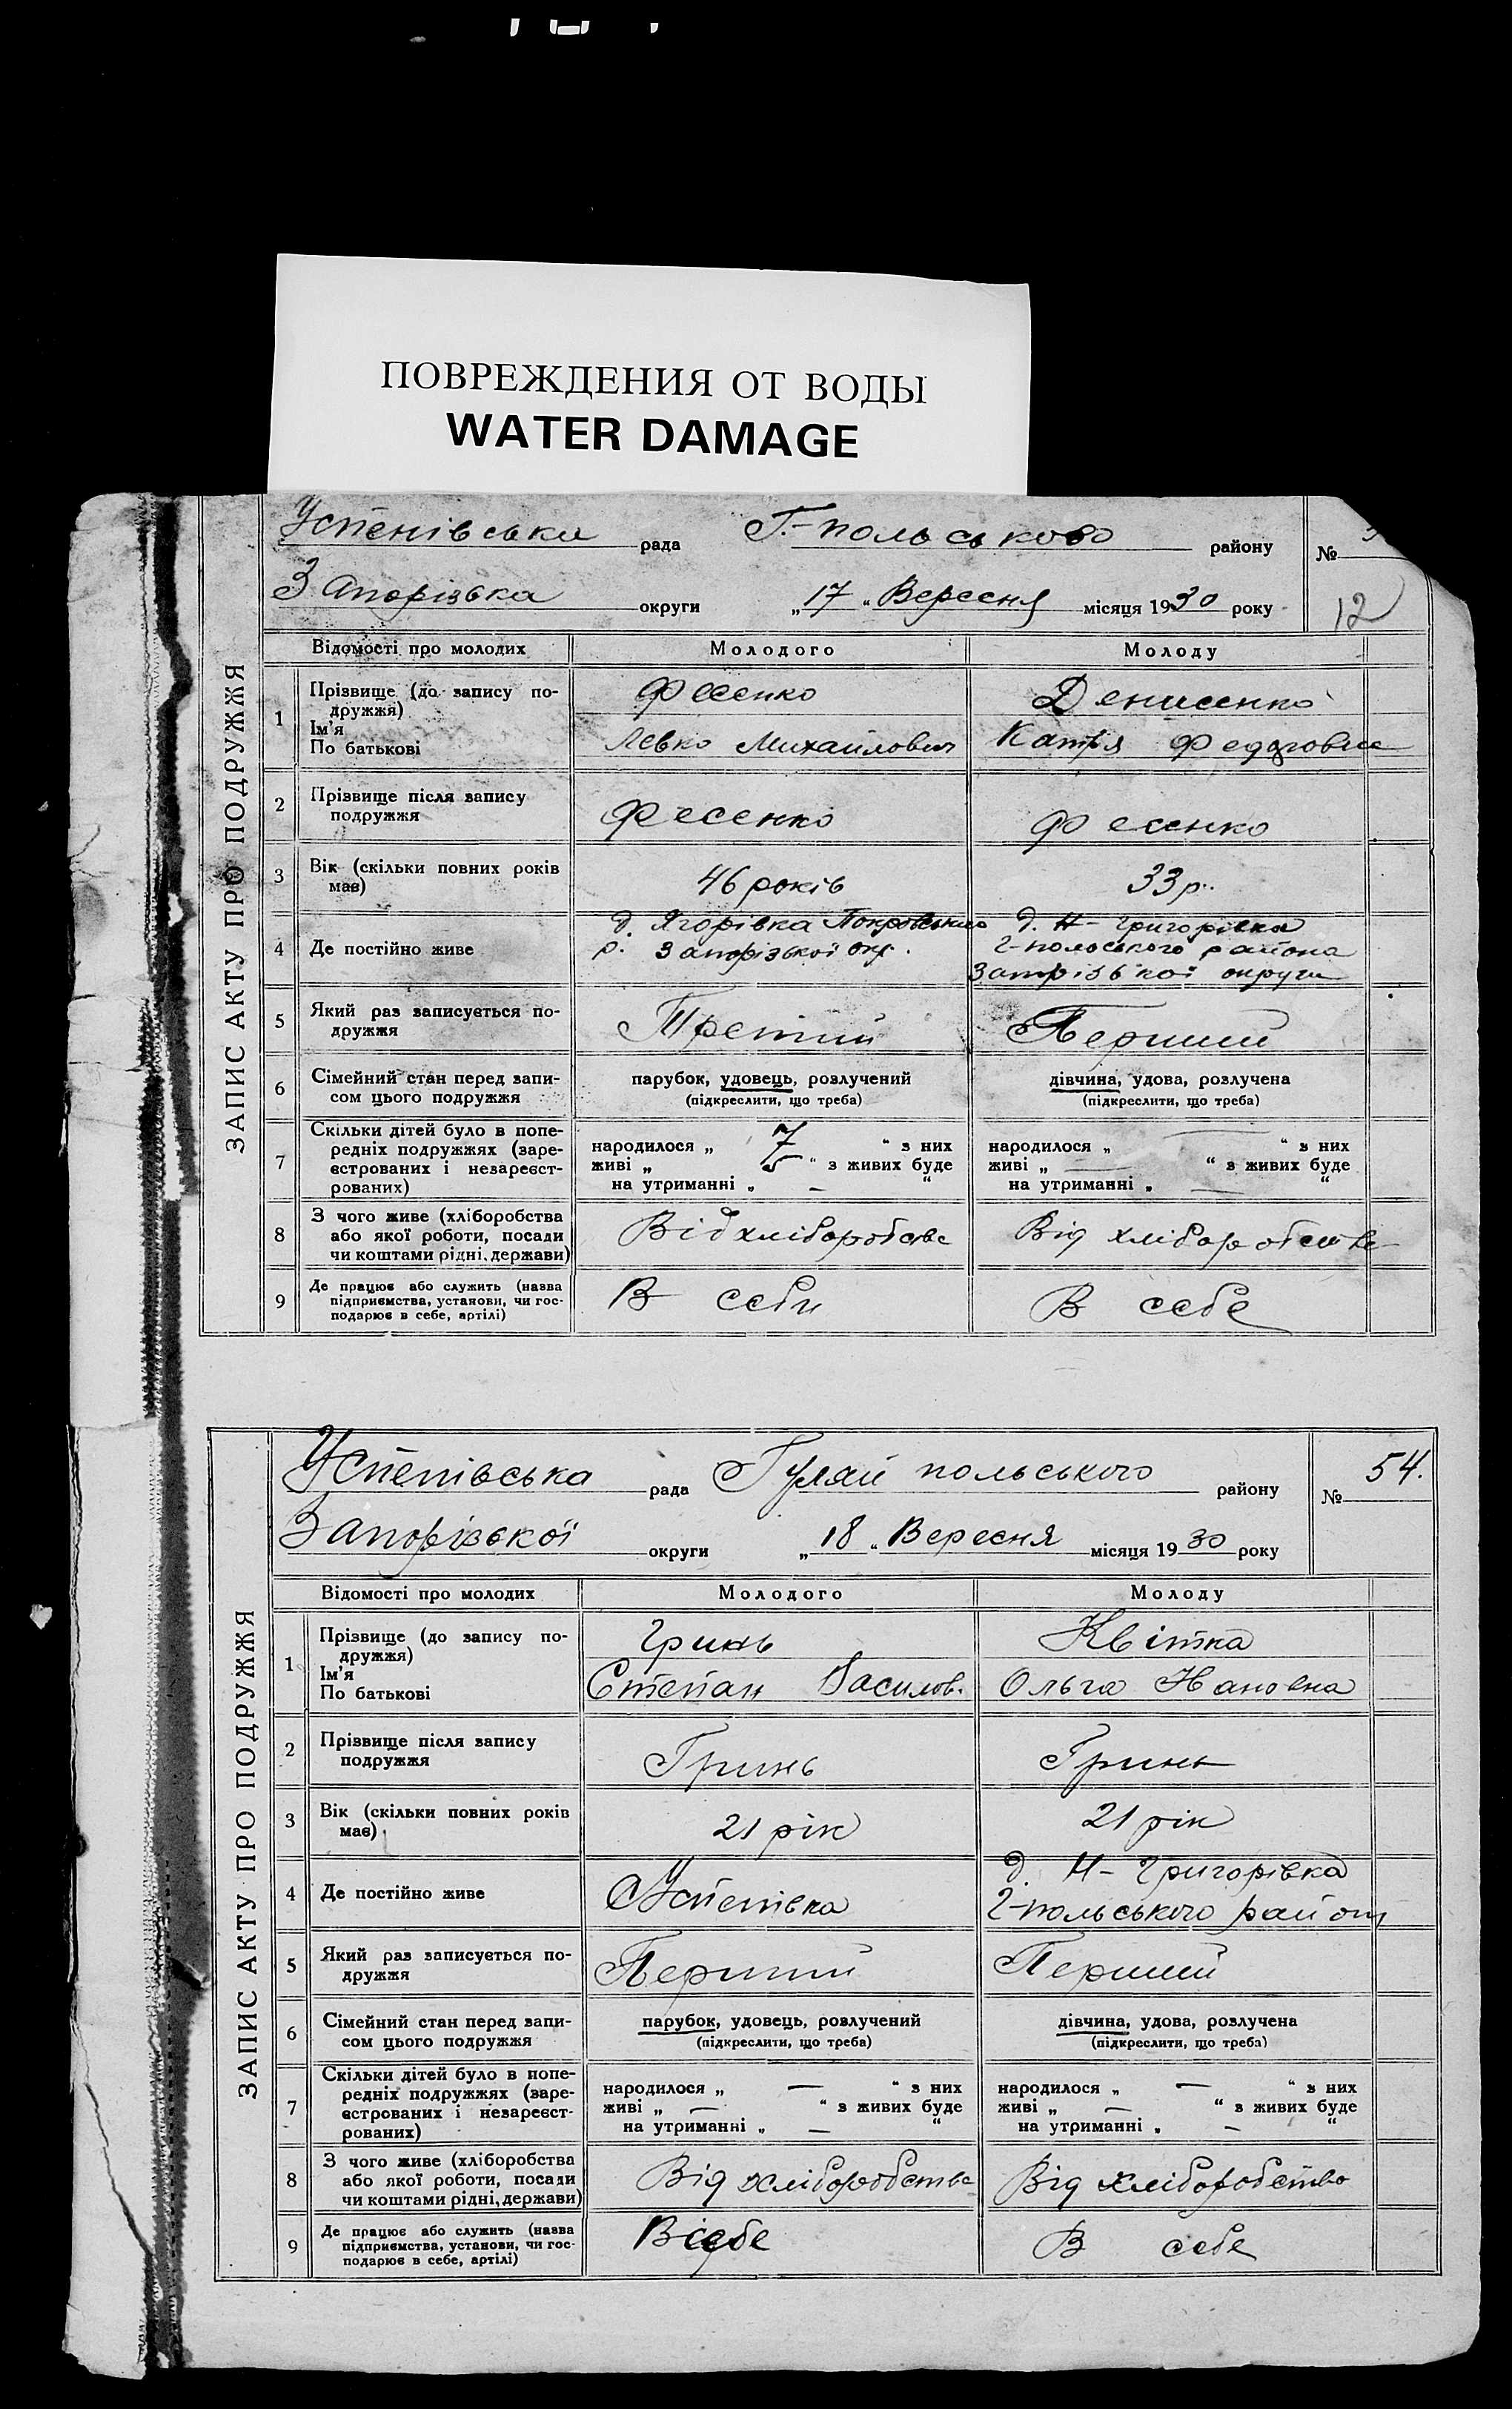 ПОВРЕЖДЕНИЯ ОТ ВОДЫ
WATER DAMAGE
ЗАПИС АКТУ ПРО ПОДРУЖЖЯ
Успенівська рада Г.-польського району №
Запорізька округи „17“ Вересня місяця 1930 року
12
Відомості про молодих Молодого Молоду
1 Прізвище (до запису по-
дружжя) Фесенко Денисенко
Ім'я
По батькові Левко Михайлович Катря Федоровна
2 Прізвище після запису
подружжя Фесенко Фесенко
3 Вік (скільки повних років
має) 46 років 33 р.
4 Де постійно живе
д. Ягорівка Покровського
р. Запорізької окр.
д. Н-Григорівка
Г-польського района
Запорізької округи
5 Який раз записується по-
дружжя Третий Перший
6 Сімейний стан перед запи-
сом цього подружжя
парубок, удовець, розлучений
(підкреслити, що треба)
дівчина, удова, розлучена
(підкреслити, що треба)
7 Скільки дітей було в попе-
редніх подружжях (заре-
єстрованих і незареєст-
рованих)
народилося „ 7 “ з них
живі „ 5 “ з живих буде
на утриманні „ — “
народилося „ — “ з них
живі „ — “ з живих буде
на утриманні „ — “
8 З чого живе (хліборобства
або якої роботи, посади
чи коштами рідні, держави)
Від хліборобства Від хліборобства
9 Де працює або служить (назва
підприємства, установи, чи гос-
подарює в себе, артілі)
В себи В себе
ЗАПИС АКТУ ПРО ПОДРУЖЖЯ
Успенівська рада Гуляй польського району № 54.
Запорізької округи „18“ Вересня місяця 1930 року
Відомості про молодих Молодого Молоду
1 Прізвище (до запису по-
дружжя) Гринь Квітка
Ім'я
По батькові Степан Василов. Ольга Івановна
2 Прізвище після запису
подружжя Гринь Гринь
3 Вік (скільки повних років
має) 21 рік 21 рік
4 Де постійно живе Успенівка
д. Н-Григорівка
Г-польського району
5 Який раз записується по-
дружжя Перший Перший
6 Сімейний стан перед запи-
сом цього подружжя
парубок, удовець, розлучений
(підкреслити, що треба)
дівчина, удова, розлучена
(підкреслити, що треба)
7 Скільки дітей було в попе-
редніх подружжях (заре-
єстрованих і незареєст-
рованих)
народилося „ — “ з них
живі „ — “ з живих буде
на утриманні „ — “
народилося „ — “ з них
живі „ — “ з живих буде
на утриманні „ — “
8 З чого живе (хліборобства
або якої роботи, посади
чи коштами рідні, держави)
Від хліборобства Від хліборобство
9 Де працює або служить (назва
підприємства, установи, чи гос-
подарює в себе, артілі)
В себе В себе